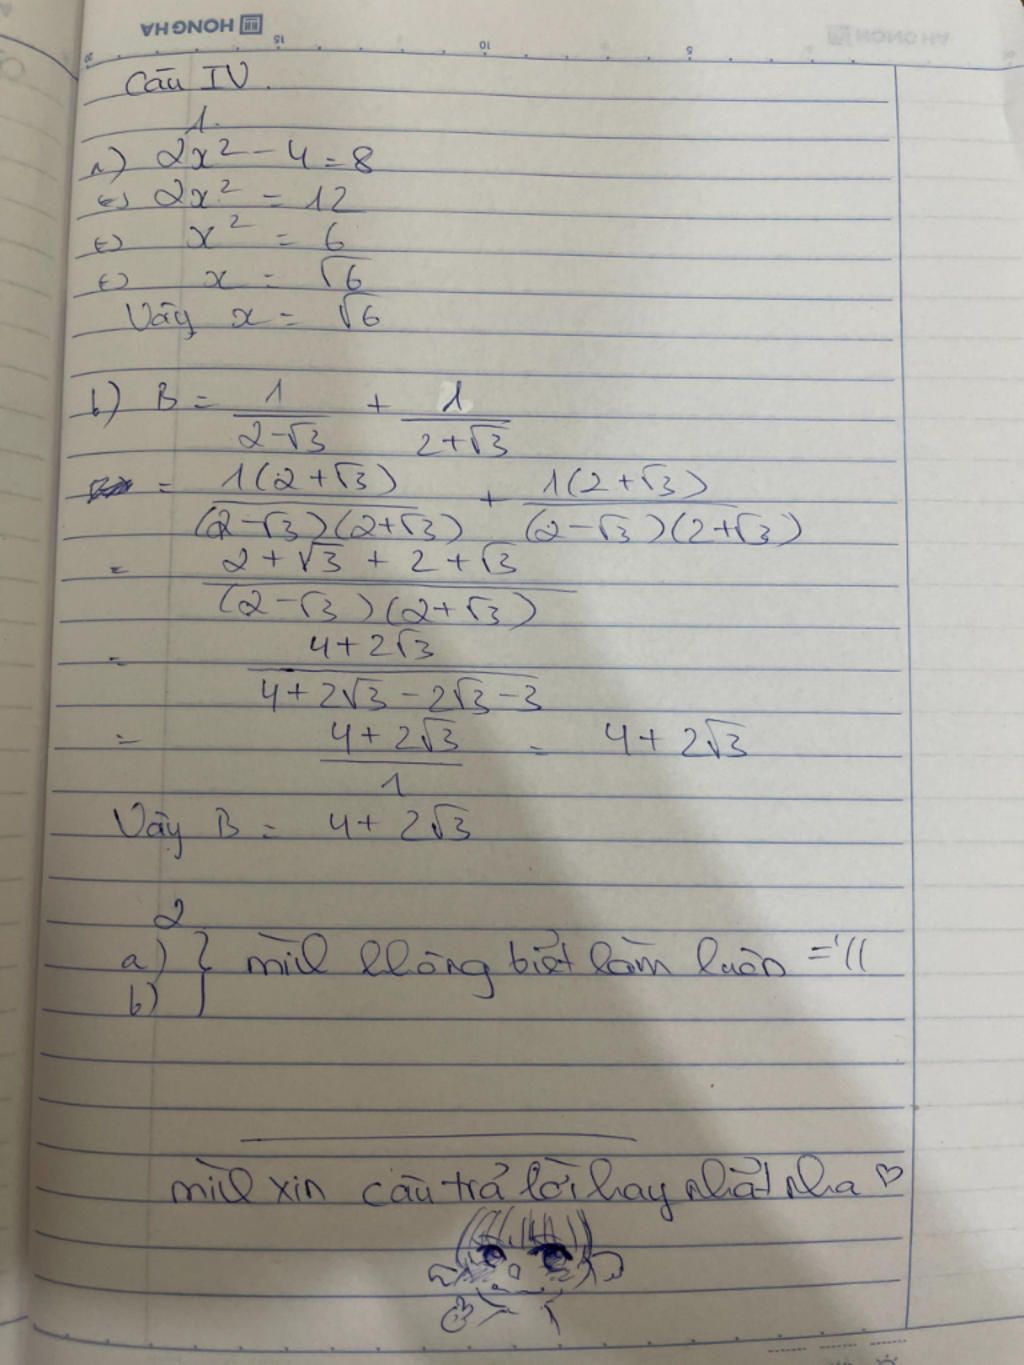 HONG HA
20 15 10 5
Câu IV.
1.
a) 2x² - 4 = 8
⇔ 2x² = 12
⇔ x² = 6
⇔ x = √6
Vậy x = √6
b) B = 1/(2-√3) + 1/(2+√3)
= 1(2+√3)/((2-√3)(2+√3)) + 1(2+√3)/((2-√3)(2+√3))
= (2+√3+2+√3)/((2-√3)(2+√3))
= (4+2√3)/(4+2√3-2√3-3)
= (4+2√3)/1 = 4+2√3
Vậy B = 4+2√3
2
a) } mình không biết làm luôn ='((
b)
mình xin câu trả lời hay nhất nha ♡